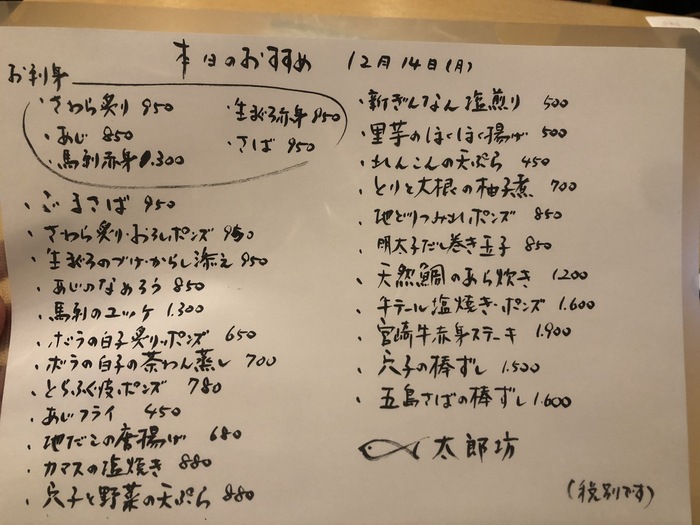 本日のおすすめ 12月14日(月)
お刺身
・さわら炙り 950
・あじ 850
・馬刺赤身 1.300
・生まぐろ赤身 950
・さば 950
・ごまさば 950
・さわら炙り・おろしポンズ 950
・生まぐろのづけ・からし添え 950
・あじのなめろう 850
・馬刺のユッケ 1.300
・ボラの白子炙り・ポンズ 650
・ボラの白子の茶わん蒸し 700
・とらふぐ皮・ポンズ 780
・あじフライ 450
・地だこの唐揚げ 680
・カマスの塩焼き 880
・穴子と野菜の天ぷら 880
・新ぎんなん塩煎り 500
・里芋のほくほく揚げ 500
・れんこんの天ぷら 450
・とりと大根の柚子煮 700
・地どりつみれポンズ 850
・明太子だし巻き玉子 850
・天然鯛のあら炊き 1200
・牛テール塩焼き・ポンズ 1.600
・宮崎牛赤身ステーキ 1.900
・穴子の棒ずし 1.500
・五島さばの棒ずし 1.600
太郎坊
(税別です)